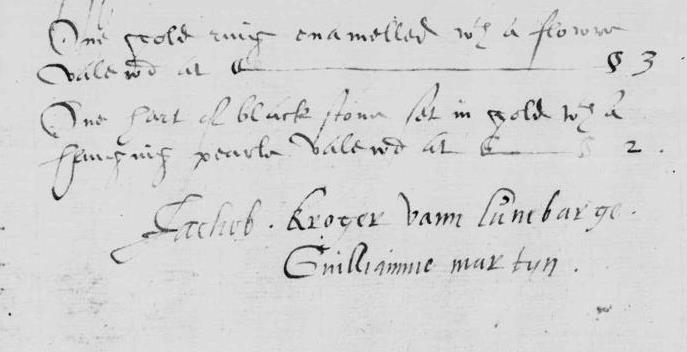 One gold ring enamelled wth a flowre
valewd at £ 3
One hart of black stone set in gold wth a
hanging pearle valewd at £ 2.
Jachob. Kroger vann Lünebarge.
Guilliamme martyn.